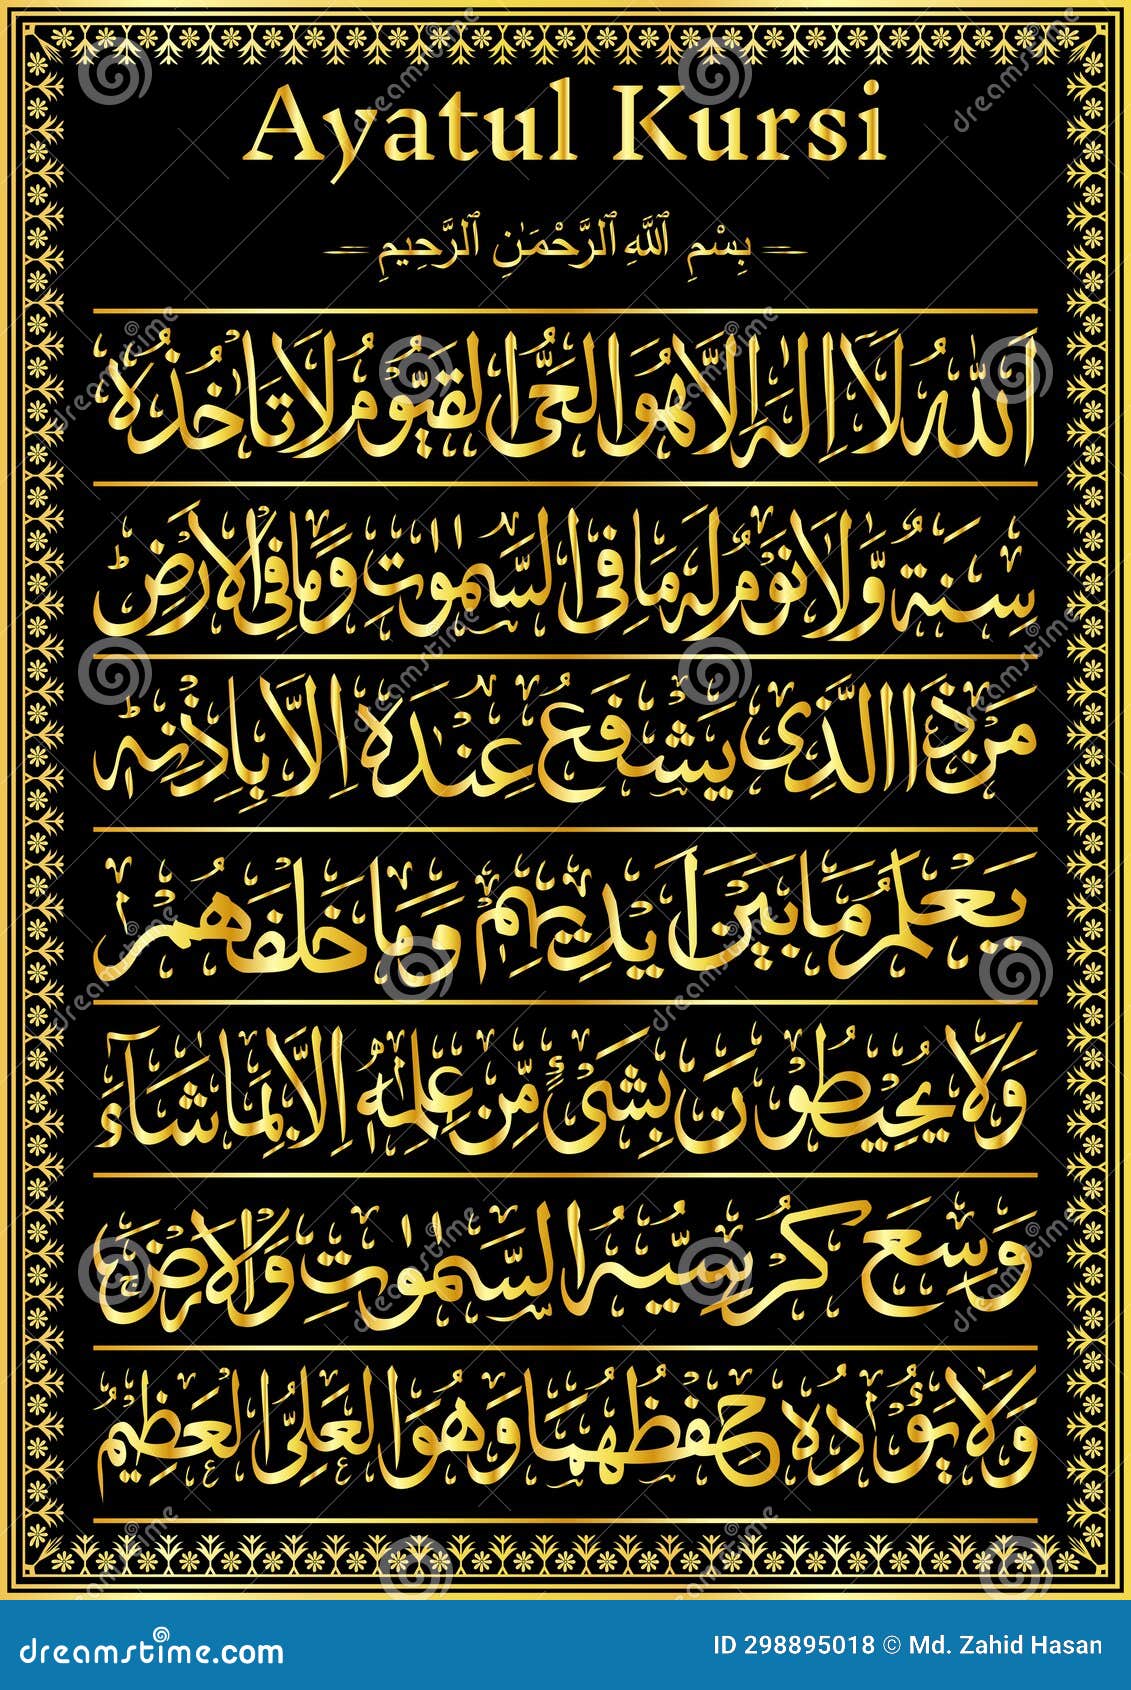 Ayatul Kursi
بِسْمِ ٱللَّهِ ٱلرَّحْمَـٰنِ ٱلرَّحِيمِ
اَللّٰهُ لَاۤ اِلٰهَ اِلَّا هُوَ الْحَیُّ الْقَیُّوْمُ لَا تَاْخُذُهٗ
سِنَةٌ وَّلَا نَوْمٌ لَهٗ مَا فِی السَّمٰوٰتِ وَمَا فِی الْاَرْضِ ؕ
مَنْ ذَا الَّذِیْ یَشْفَعُ عِنْدَهٗۤ اِلَّا بِاِذْنِهٖ ؕ
یَعْلَمُ مَا بَیْنَ اَیْدِیْهِمْ وَمَا خَلْفَهُمْ ۚ
وَلَا یُحِیْطُوْنَ بِشَیْءٍ مِّنْ عِلْمِهٖۤ اِلَّا بِمَا شَآءَ ۚ
وَسِعَ كُرْسِیُّهُ السَّمٰوٰتِ وَالْاَرْضَ ۚ
وَلَا یَـُٔوْدُهٗ حِفْظُهُمَا وَهُوَ الْعَلِیُّ الْعَظِیْمُ
dreamstime.com
ID 298895018 © Md. Zahid Hasan